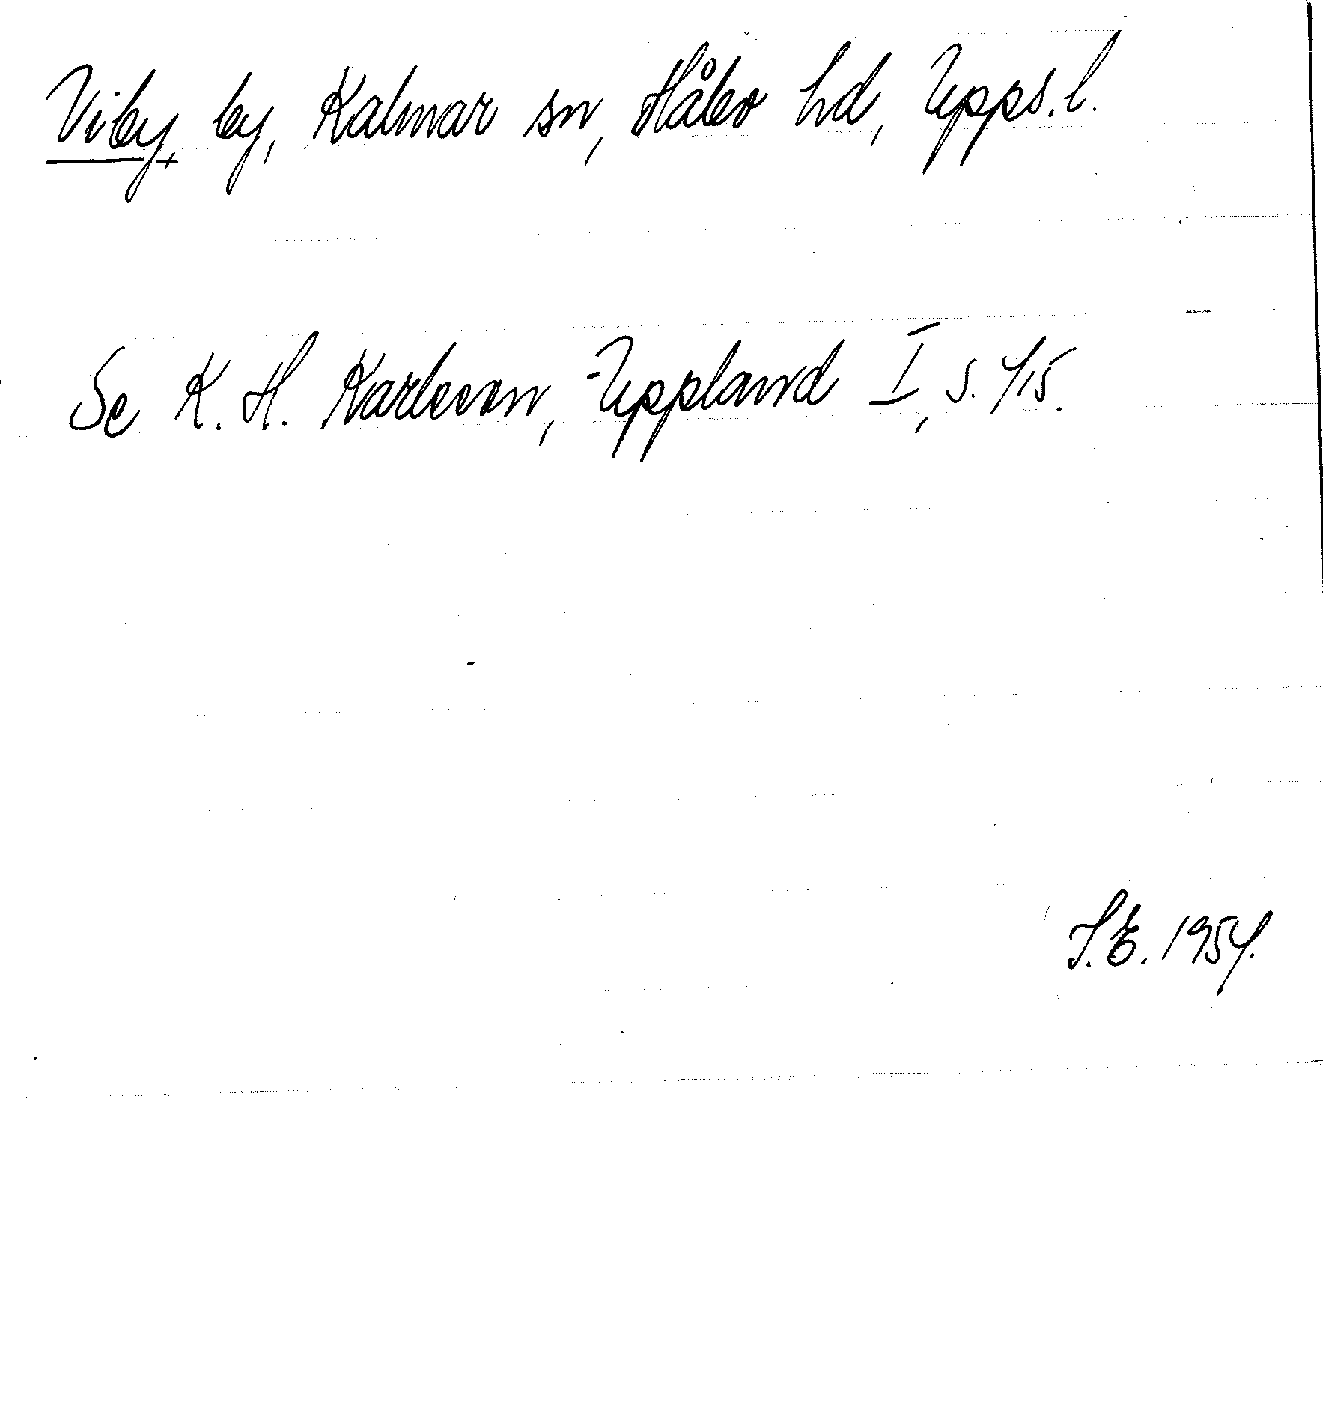 Viby, by, Kalmar sn, Håbo hd, Upps. l.
Se K. H. Karlsson, Uppland I, s. 415.
S.E. 1954.